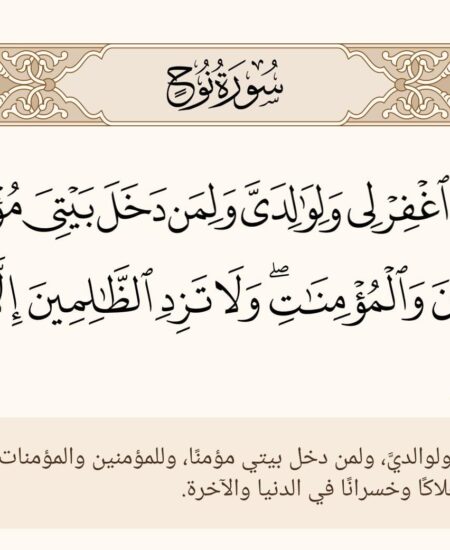 سُورَةُ نُوحٍ
ٱغۡفِرۡ لِي وَلِوَٰلِدَيَّ وَلِمَن دَخَلَ بَيۡتِيَ
وَٱلۡمُؤۡمِنَٰتِۖ وَلَا تَزِدِ ٱلظَّٰلِمِينَ
ولوالديَّ، ولمن دخل بيتي مؤمنًا، وللمؤمنين والمؤمنات
وخسرانًا في الدنيا والآخرة.